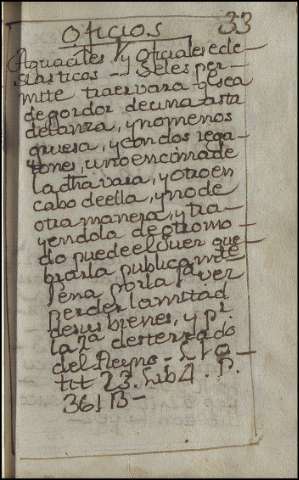 33
Oficios
Aguaciles y oficiales ecle-
siasticos - Seles per-
mite traer vara q̃ sea
de gordor de un a asta
de lanza, y no menos
gruesa, y con dos rega-
tones, uno encima de
la dħa vara, y otro en
cabo de ella, y no de
otra manera, y tra-
yendola de otro mo-
do puede el Juez que-
brarla publicamte
pena por la pa. vez
perder la mitad
de sus bienes, y pr.
la 2a. desterrado
del Reyno - L 1 a -
tit 23. Lib 4. P.
361 B -